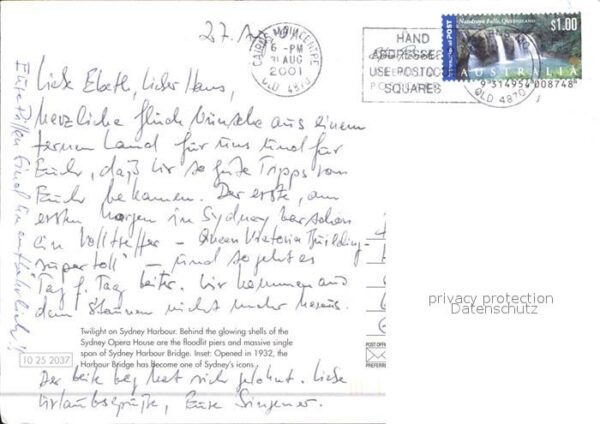 27.
CAIRNS MAIL CENTRE
6 - PM
31 AUG
2001
QLD 4870
HAND
ADDRESSED
USE POSTCODE
SQUARES
QLD 4870
Nandroya Falls, Queensland
$1.00
INTERNATIONAL POST
AUSTRALIA
9 314954 008748
Liebe Elbeth, lieber Hans,
herzliche Glückwünsche aus einem
fernen Land für uns und für
Euch, daß wir so gute Tipps von
Euch bekamen. Der erste, am
ersten Morgen in Sydney war schon
ein Volltreffer – Queen Victoria Building –
"supertoll" – und so geht es
Tag f. Tag weiter. Wir kommen aus
dem Staunen nicht mehr heraus.
Twilight on Sydney Harbour. Behind the glowing shells of the
Sydney Opera House are the floodlit piers and massive single
span of Sydney Harbour Bridge. Inset: Opened in 1932, the
Harbour Bridge has become one of Sydney's icons.
10 25 2037
Der weite Weg hat sich gelohnt. Liebe
Urlaubsgrüße, Eure
sind unentbehrlich!
POST OFFICE
PREFERRED
privacy protection
Datenschutz